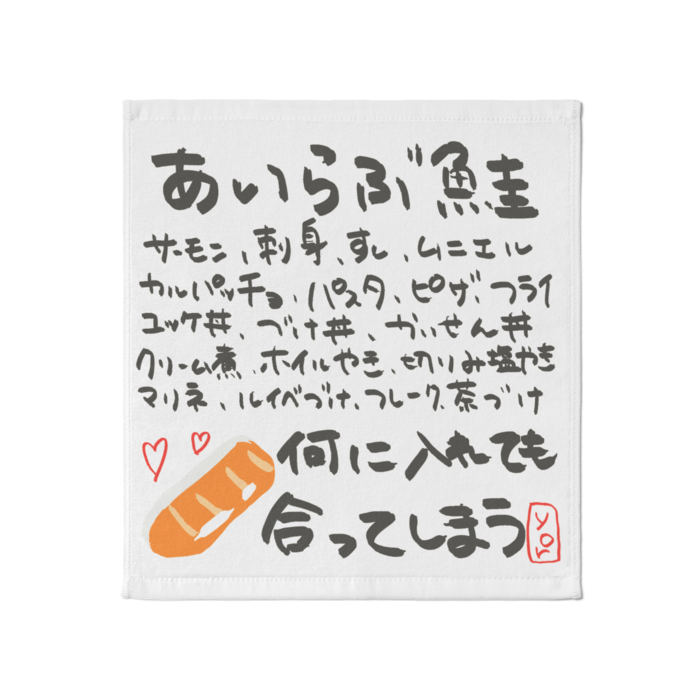 あいらぶ鮭
サーモン、刺身、すし、ムニエル
カルパッチョ、パスタ、ピザ、フライ
ユッケ丼、づけ丼、かいせん丼
クリーム煮、ホイルやき、切りみ塩やき
マリネ、ルイベづけ、フレーク、茶づけ
何に入れても
合ってしまう